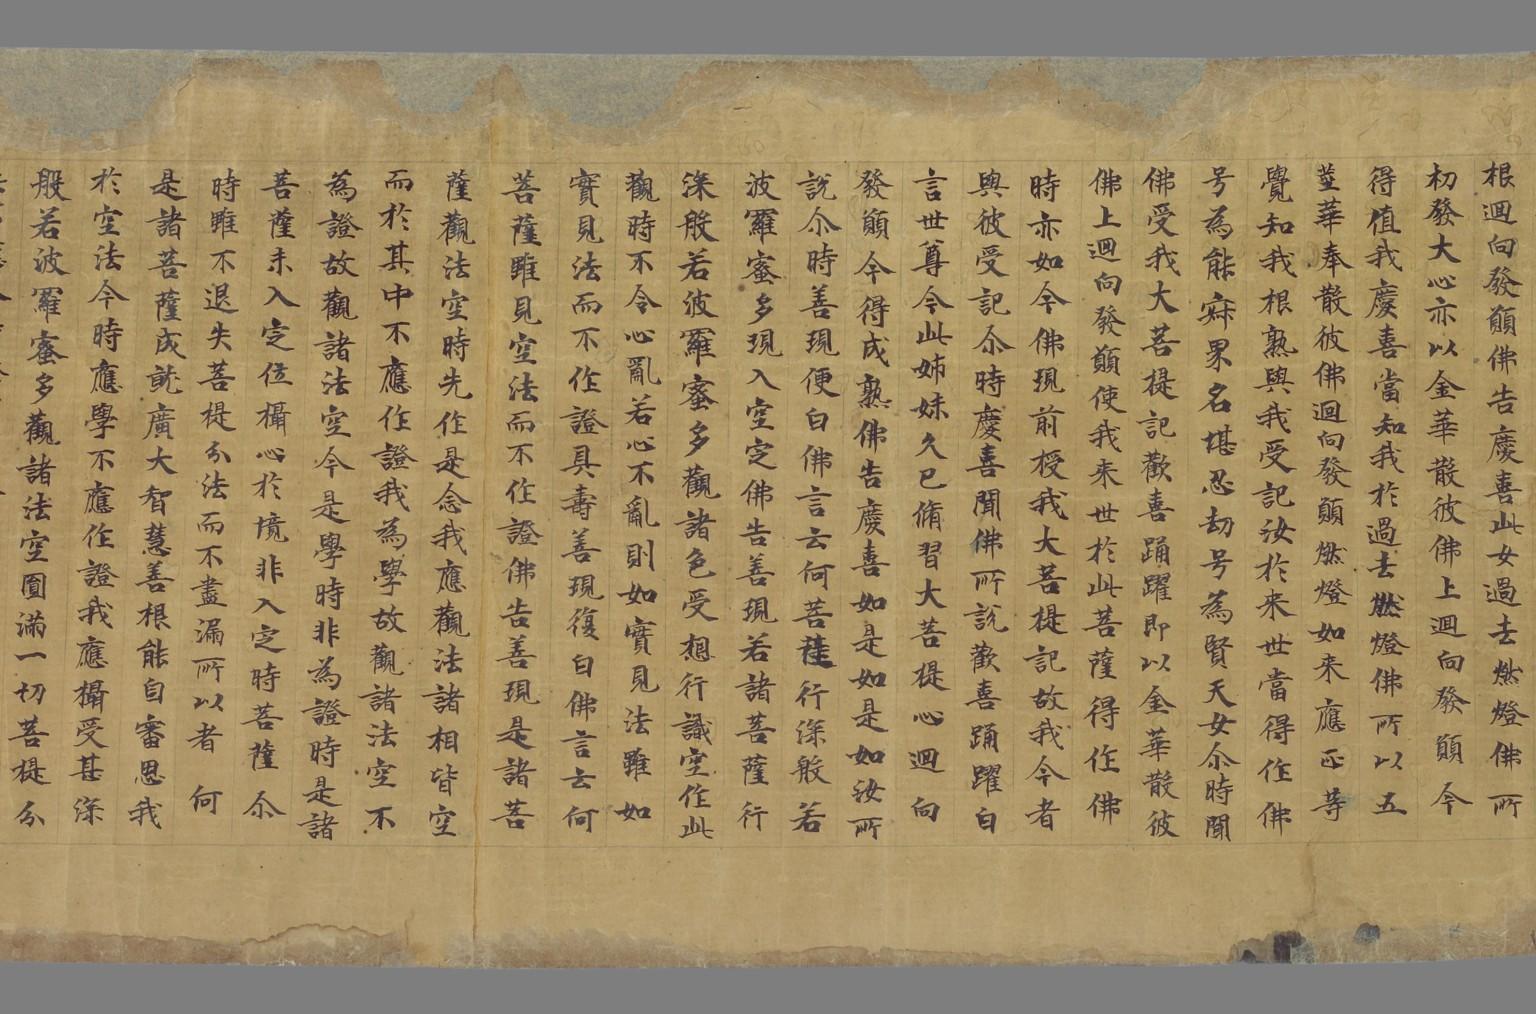 根迴向發願佛告慶喜此女過去燃燈佛所
初發大心亦以金華散彼佛上迴向發願今
得值我慶喜當知我於過去燃燈佛所以五
莖華奉散彼佛迴向發願燃燈如來應正等
覺知我根熟與我受記汝於来世當得作佛
号為能寂界名堪忍劫号為賢天女尒時聞
佛受我大菩提記歡喜踊躍即以金華散彼
佛上迴向發願使我来世於此菩薩得作佛
時亦如今佛現前授我大菩提記故我今者
與彼受記尒時慶喜聞佛所說歡喜踊躍白
言世尊今此姊妹久已脩習大菩提心迴向
發願今得成熟佛告慶喜如是如是如汝所
說尒時善現便白佛言云何菩薩行深般若
波羅蜜多現入空定佛告善現若諸菩薩行
深般若波羅蜜多觀諸色受想行識空作此
觀時不令心亂若心不亂則如實見法雖如
實見法而不作證具壽善現復白佛言云何
菩薩雖見空法而不作證佛告善現是諸菩
薩觀法空時先作是念我應觀法諸相皆空
而於其中不應作證我為學故觀諸法空不
為證故觀諸法空今是學時非為證時是諸
菩薩未入定位攝心於境非入定時菩薩尒
時雖不退失菩提分法而不盡漏所以者何
是諸菩薩成就廣大智慧善根能自審思我
於空法今時應學不應作證我應攝受甚深
般若波羅蜜多觀諸法空圓滿一切菩提分